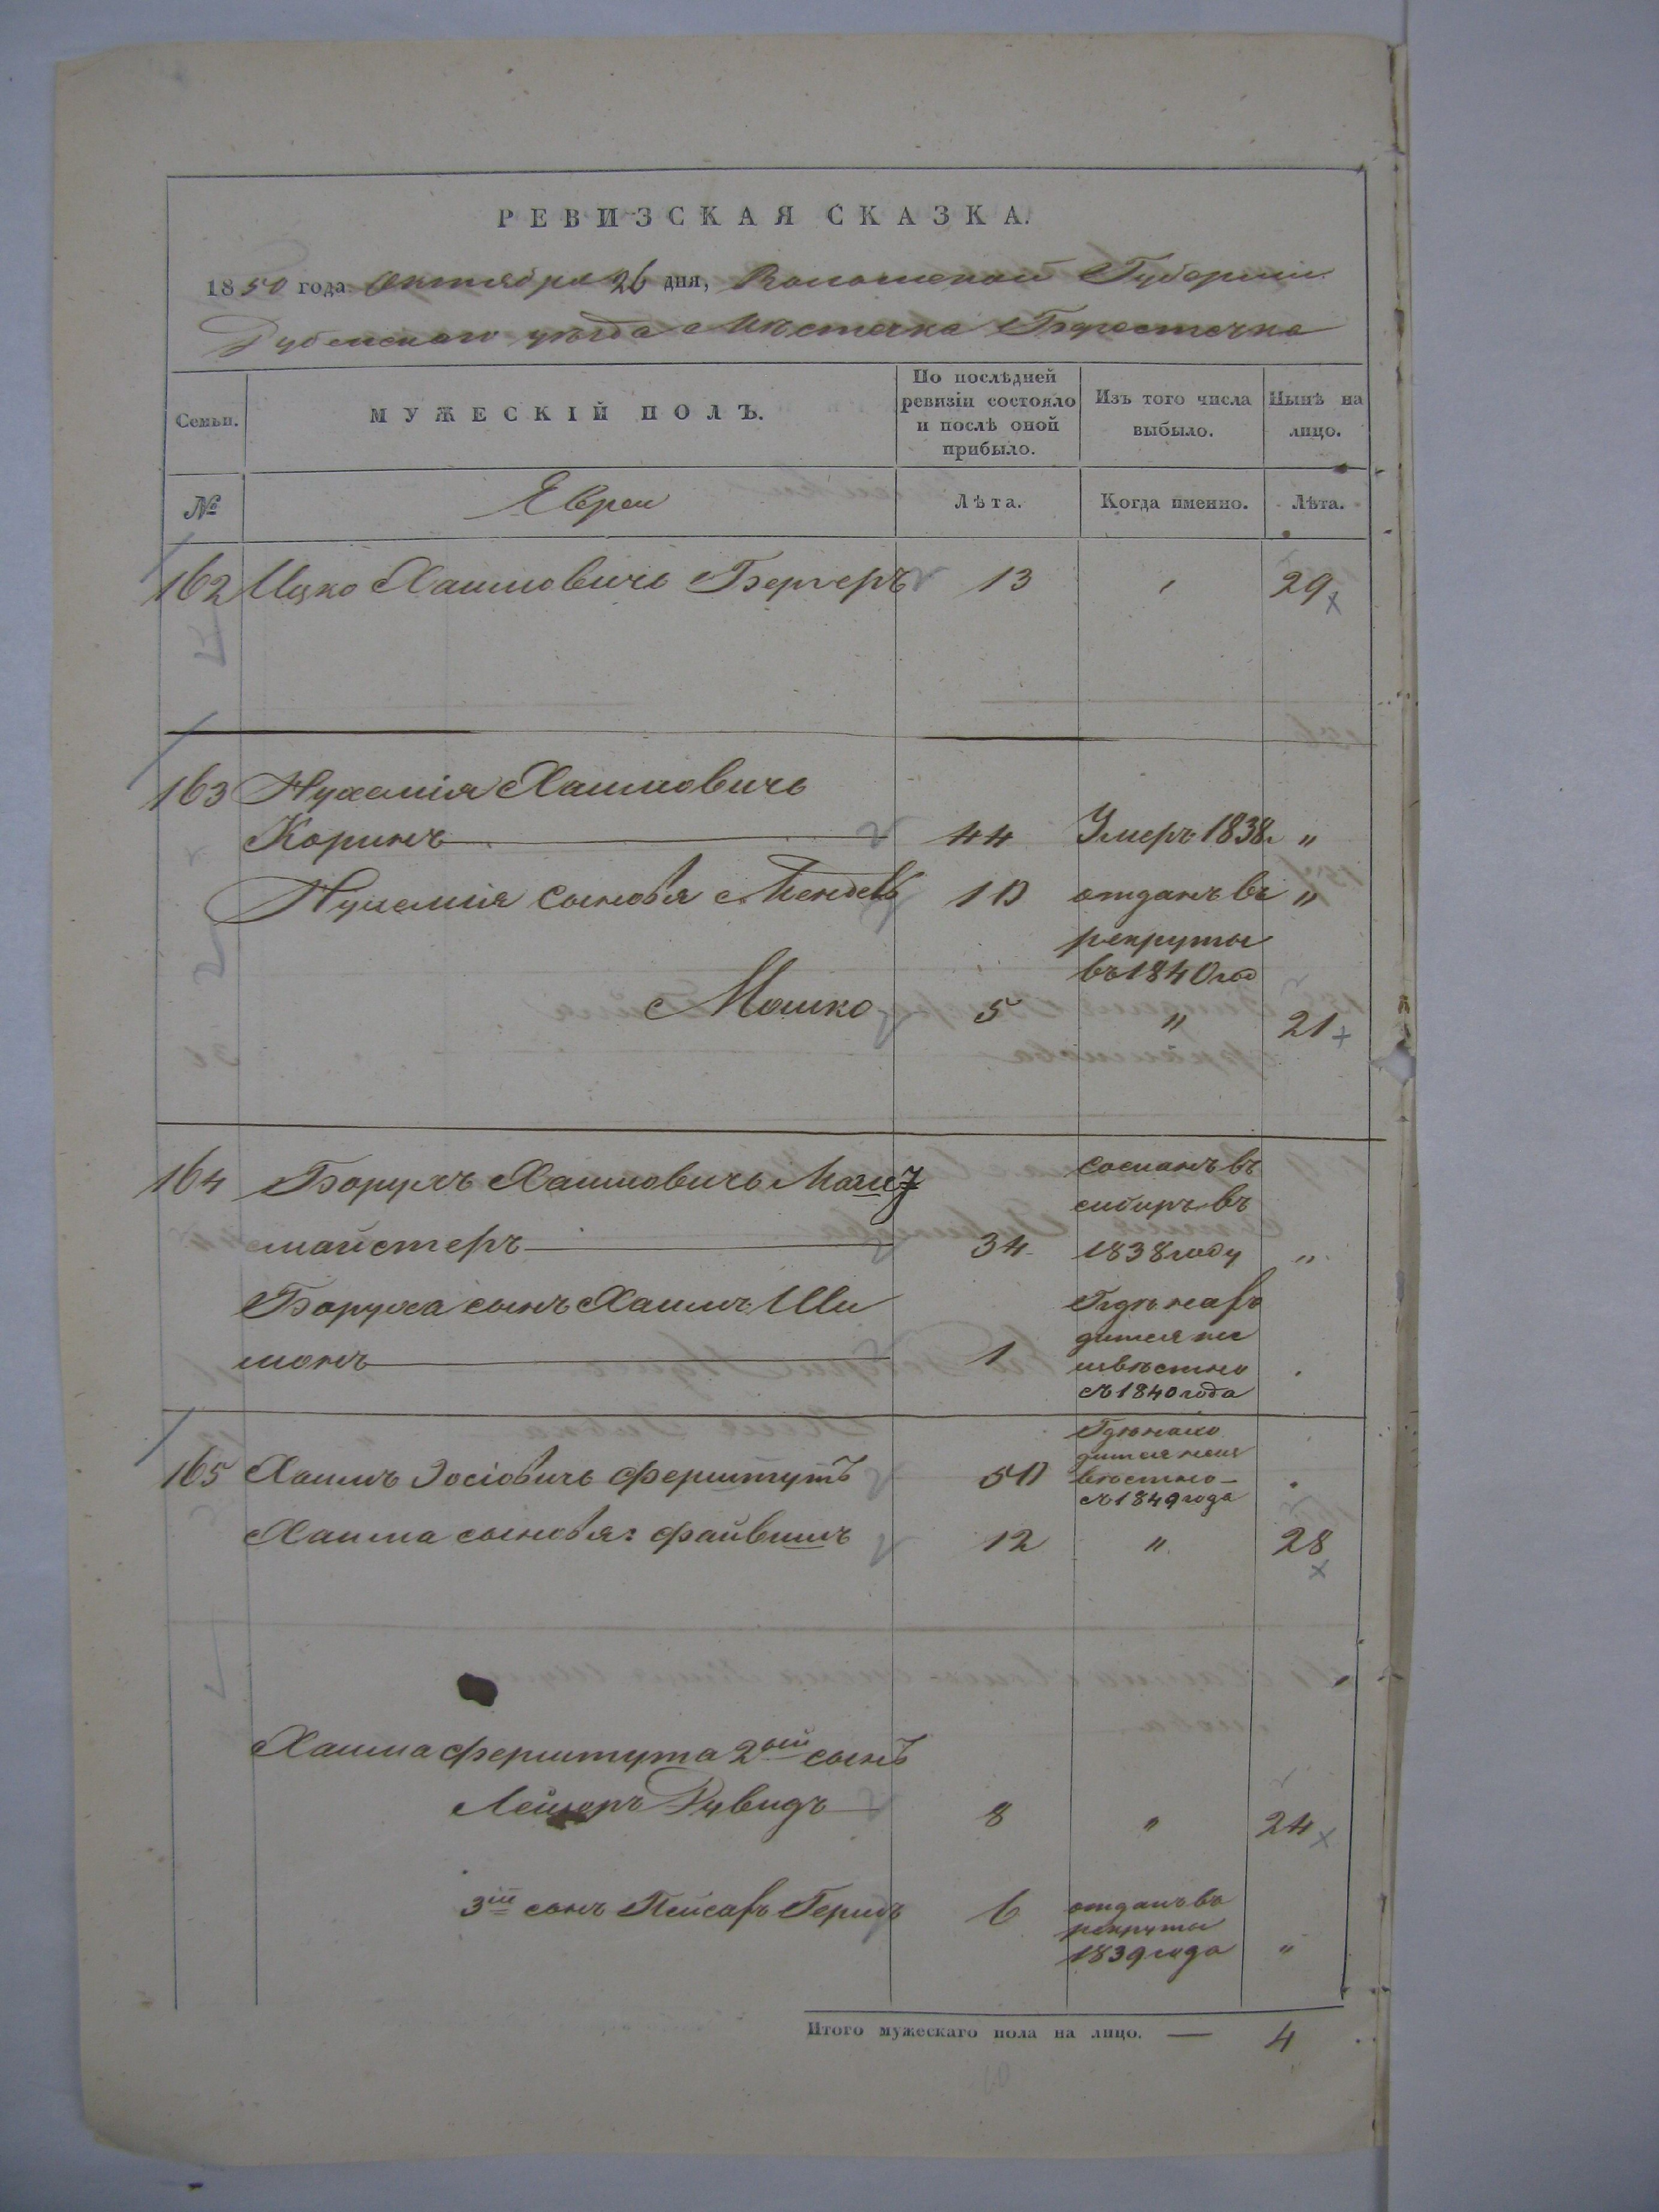 РЕВИЗСКАЯ СКАЗКА.
1850 года Октября 26 дня, Волынской Губернии
Дубенского уѣзда Мѣстечка Берестечка
Семьи.
МУЖЕСКІЙ ПОЛЪ.
По послѣдней ревизіи состояло и послѣ оной прибыло.
Изъ того числа выбыло.
Нынѣ на лицо.
№
Евреи
Лѣта.
Когда именно.
Лѣта.
162 Ицко Хаимовичъ Бергеръ 13 " 29
163 Нухемія Хаимовичъ
Коринъ 44 Умеръ 1838 "
Нухемія сыновья Мендель 10 отданъ въ "
рекруты
въ 1840 год
Мошко 5 " 21
164 Борухъ Хаимовичъ
сосланъ въ
сибирь въ
майстеръ 34 1838 году "
Боруха сынъ Хаимъ Ши
монъ 1
Гдѣ нахо
дится не
извѣстно
съ 1840 года
165 Хаимъ Іосіовичъ Ферштутъ 50
Гдѣ нахо
дится неиз
вѣстно
съ 1849 года
Хаима сыновья: Файвишъ 12 " 28
Хаима Ферштута 2ой сынъ
Лейзоръ Дувидъ 8 " 24
3ій сынъ Пейсахъ Гершъ 6 отданъ въ
рекруты
1839 года "
Итого мужескаго пола на лицо. — 4